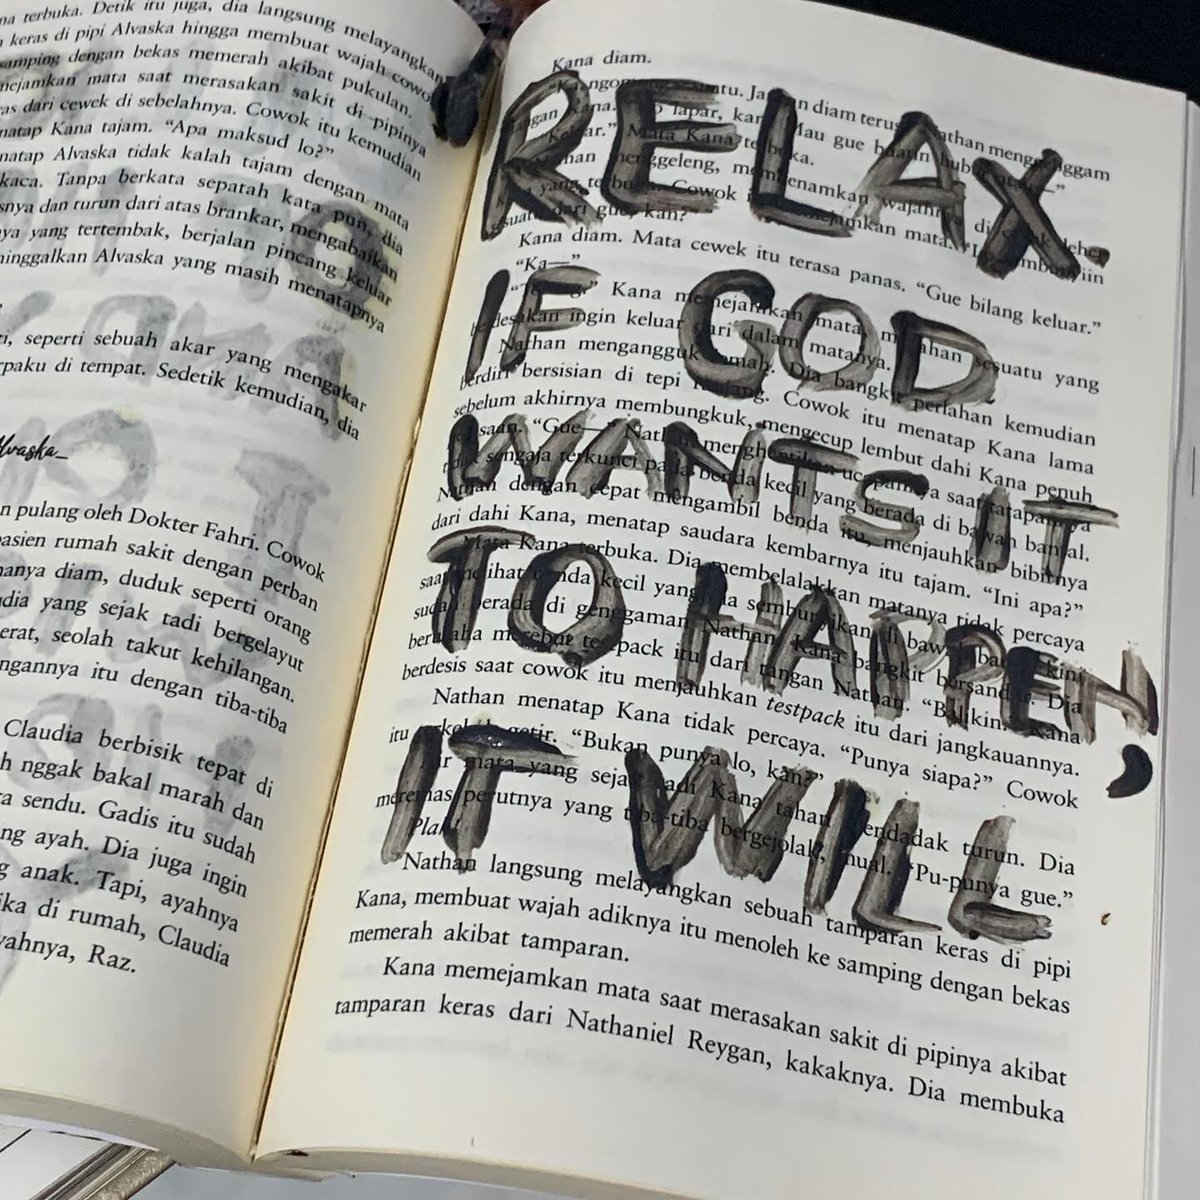 na terbuka. Detik itu juga, dia langsung melayangkan
keras di pipi Alvaska hingga membuat wajah cowok
samping dengan bekas memerah akibat pukulan.
mejamkan mata saat merasakan sakit di pipinya
as dari cewek di sebelahnya. Cowok itu kemudian
natap Kana tajam. “Apa maksud lo?”
natap Alvaska tidak kalah tajam dengan mata
kaca. Tanpa berkata sepatah kata pun, dia
snya dan turun dari atas brankar, mengabaikan
ya yang tertembak, berjalan pincang keluar
ninggalkan Alvaska yang masih menatapnya
i, seperti sebuah akar yang mengakar
rpaku di tempat. Sedetik kemudian, dia
Alvaska_
n pulang oleh Dokter Fahri. Cowok
pasien rumah sakit dengan perban
hanya diam, duduk seperti orang
dia yang sejak tadi bergelayut
erat, seolah takut kehilangan.
ngannya itu dengan tiba-tiba
Claudia berbisik tepat di
h nggak bakal marah dan
a sendu. Gadis itu sudah
ng ayah. Dia juga ingin
g anak. Tapi, ayahnya
ika di rumah, Claudia
yahnya, Raz.
RELAX.
IF GOD
WANTS IT
TO HAPPEN,
IT WILL
Kana diam.
diam terus. Nathan menggenggam
tangan Kana. lapar, kan? Mau gue
Mata Kana terbuka.
menggeleng, membenamkan wajahnya di
yang terbuka. Cowok memejamkan mata.
dari gue, kan?”
Kana diam. Mata cewek itu terasa panas. “Gue bilang keluar.”
“Ka—”
Kana memejamkan mata, menahan sesuatu yang
berdesakan ingin keluar dari dalam matanya.
Nathan mengangguk lemah. Dia bangkit perlahan kemudian
berdiri bersisian di tepi ranjang. Cowok itu menatap Kana lama
sebelum akhirnya membungkuk, mengecup lembut dahi Kana penuh
“Gue—” Nathan menghentikan ucapannya saat tatapannya
tidak sengaja terkunci pada benda kecil yang berada di bawah bantal.
Nathan dengan cepat mengambil benda itu, menjauhkan bibirnya
dari dahi Kana, menatap saudara kembarnya itu tajam. “Ini apa?”
Mata Kana terbuka. Dia membelalakkan matanya tidak percaya
saat melihat benda kecil yang dia sembunyikan di bawah bantal kini
sudah berada di genggaman Nathan. Kana bangkit bersandar. Dia
berusaha merebut testpack itu dari tangan Nathan. “Balikin.” Kana
berdesis saat cowok itu menjauhkan testpack itu dari jangkauannya.
Nathan menatap Kana tidak percaya. “Punya siapa?” Cowok
itu terkekeh getir. “Bukan punya lo, kan?”
Air mata yang sejak tadi Kana tahan mendadak turun. Dia
meremas perutnya yang tiba-tiba bergejolak, mual. “Pu-punya gue.”
Plak!
Nathan langsung melayangkan sebuah tamparan keras di pipi
Kana, membuat wajah adiknya itu menoleh ke samping dengan bekas
memerah akibat tamparan.
Kana memejamkan mata saat merasakan sakit di pipinya akibat
tamparan keras dari Nathaniel Reygan, kakaknya. Dia membuka